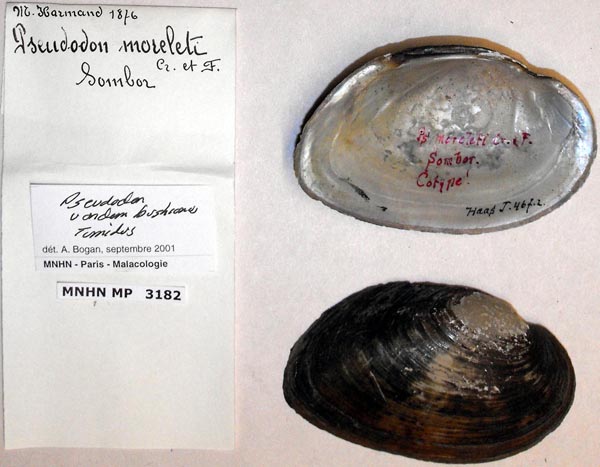 M. Harmand 1876
Pseudodon moreleti
Cr. et F.
Sombor
Pseudodon
vondembuschianus
Tumidus
dét. A. Bogan, septembre 2001
MNHN - Paris - Malacologie
MNHN MP 3182
Ps moreleti Cr. & F.
Sombor.
Cotype!
Haas T. 46 f. 2.